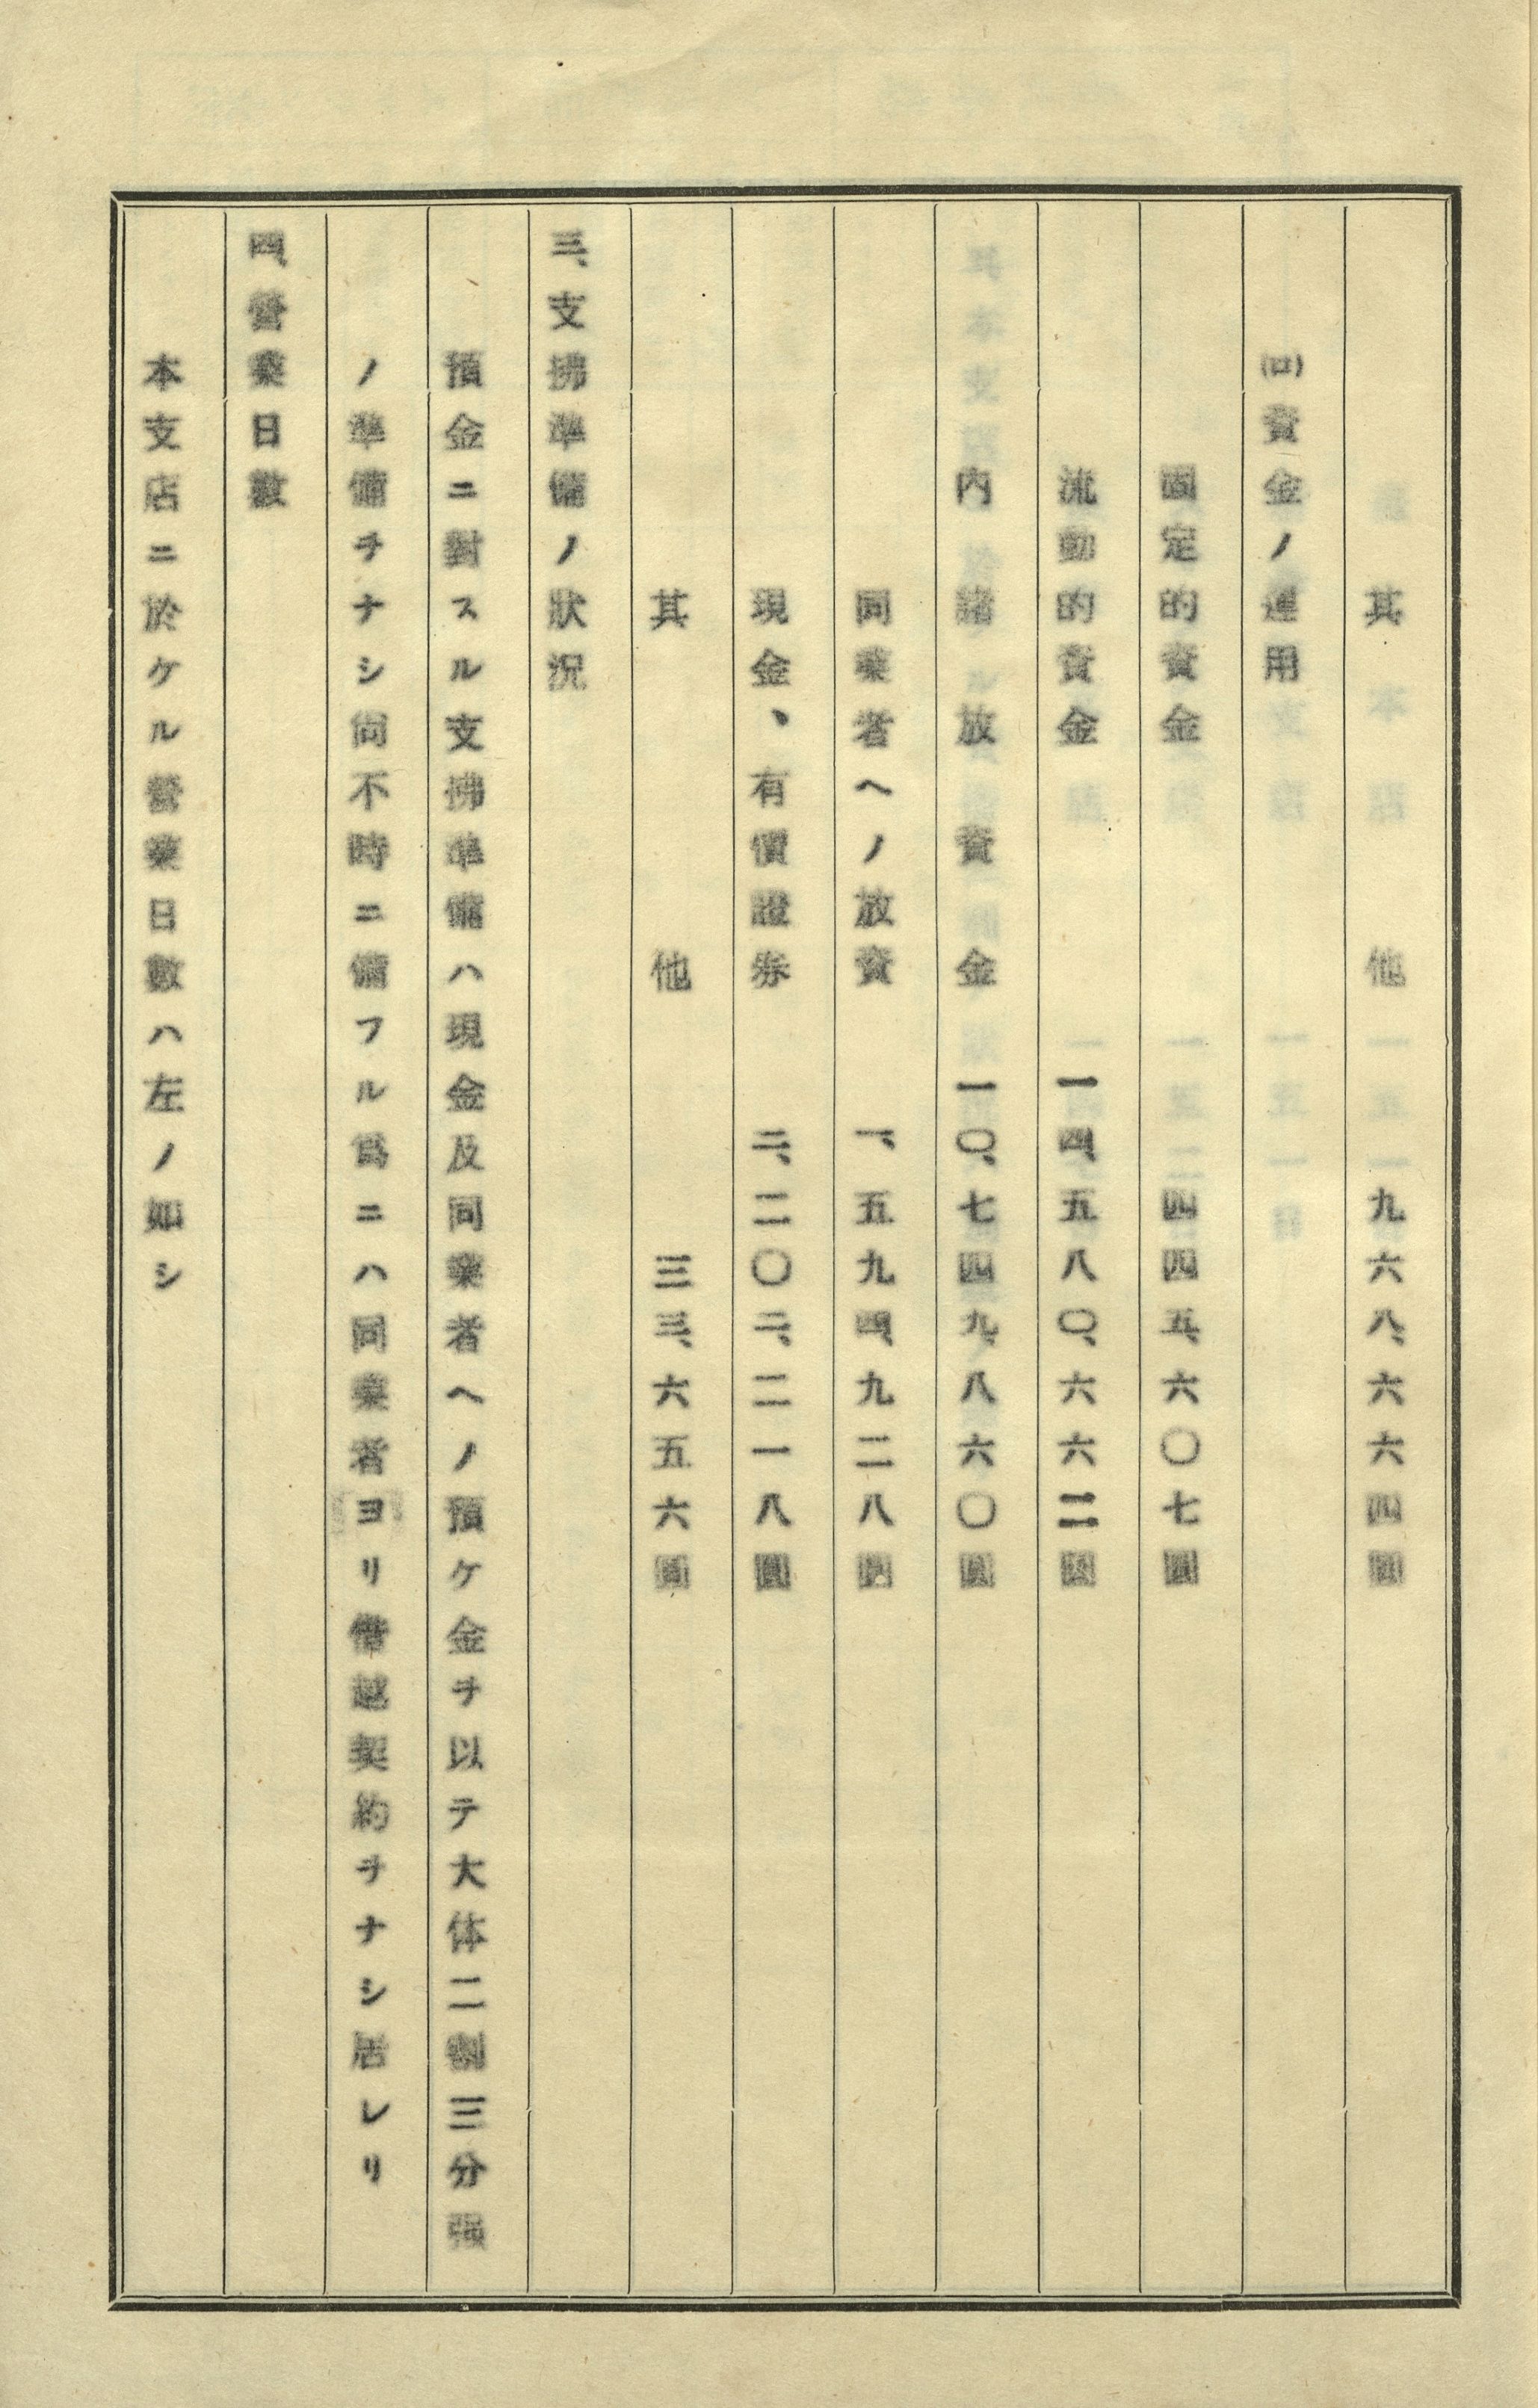 其他 九六八、六六四圓
(ロ)資金ノ運用
固定的資金 四四五、六〇七圓
流動的資金 一四、五八〇、六六二圓
内 諸放資金 一〇、七四九、八六〇圓
同業者ヘノ放資 一、五九四、九二八圓
現金、有價證券 二、二〇二、二一八圓
其他 三三、六五六圓
三、支拂準備ノ狀況
預金ニ對スル支拂準備ハ現金及同業者ヘノ預ケ金ヲ以テ大体二割三分强
ノ準備ヲナシ尙不時ニ備フル爲ニハ同業者ヨリ借越契約ヲナシ居レリ
四、營業日數
本支店ニ於ケル營業日數ハ左ノ如シ